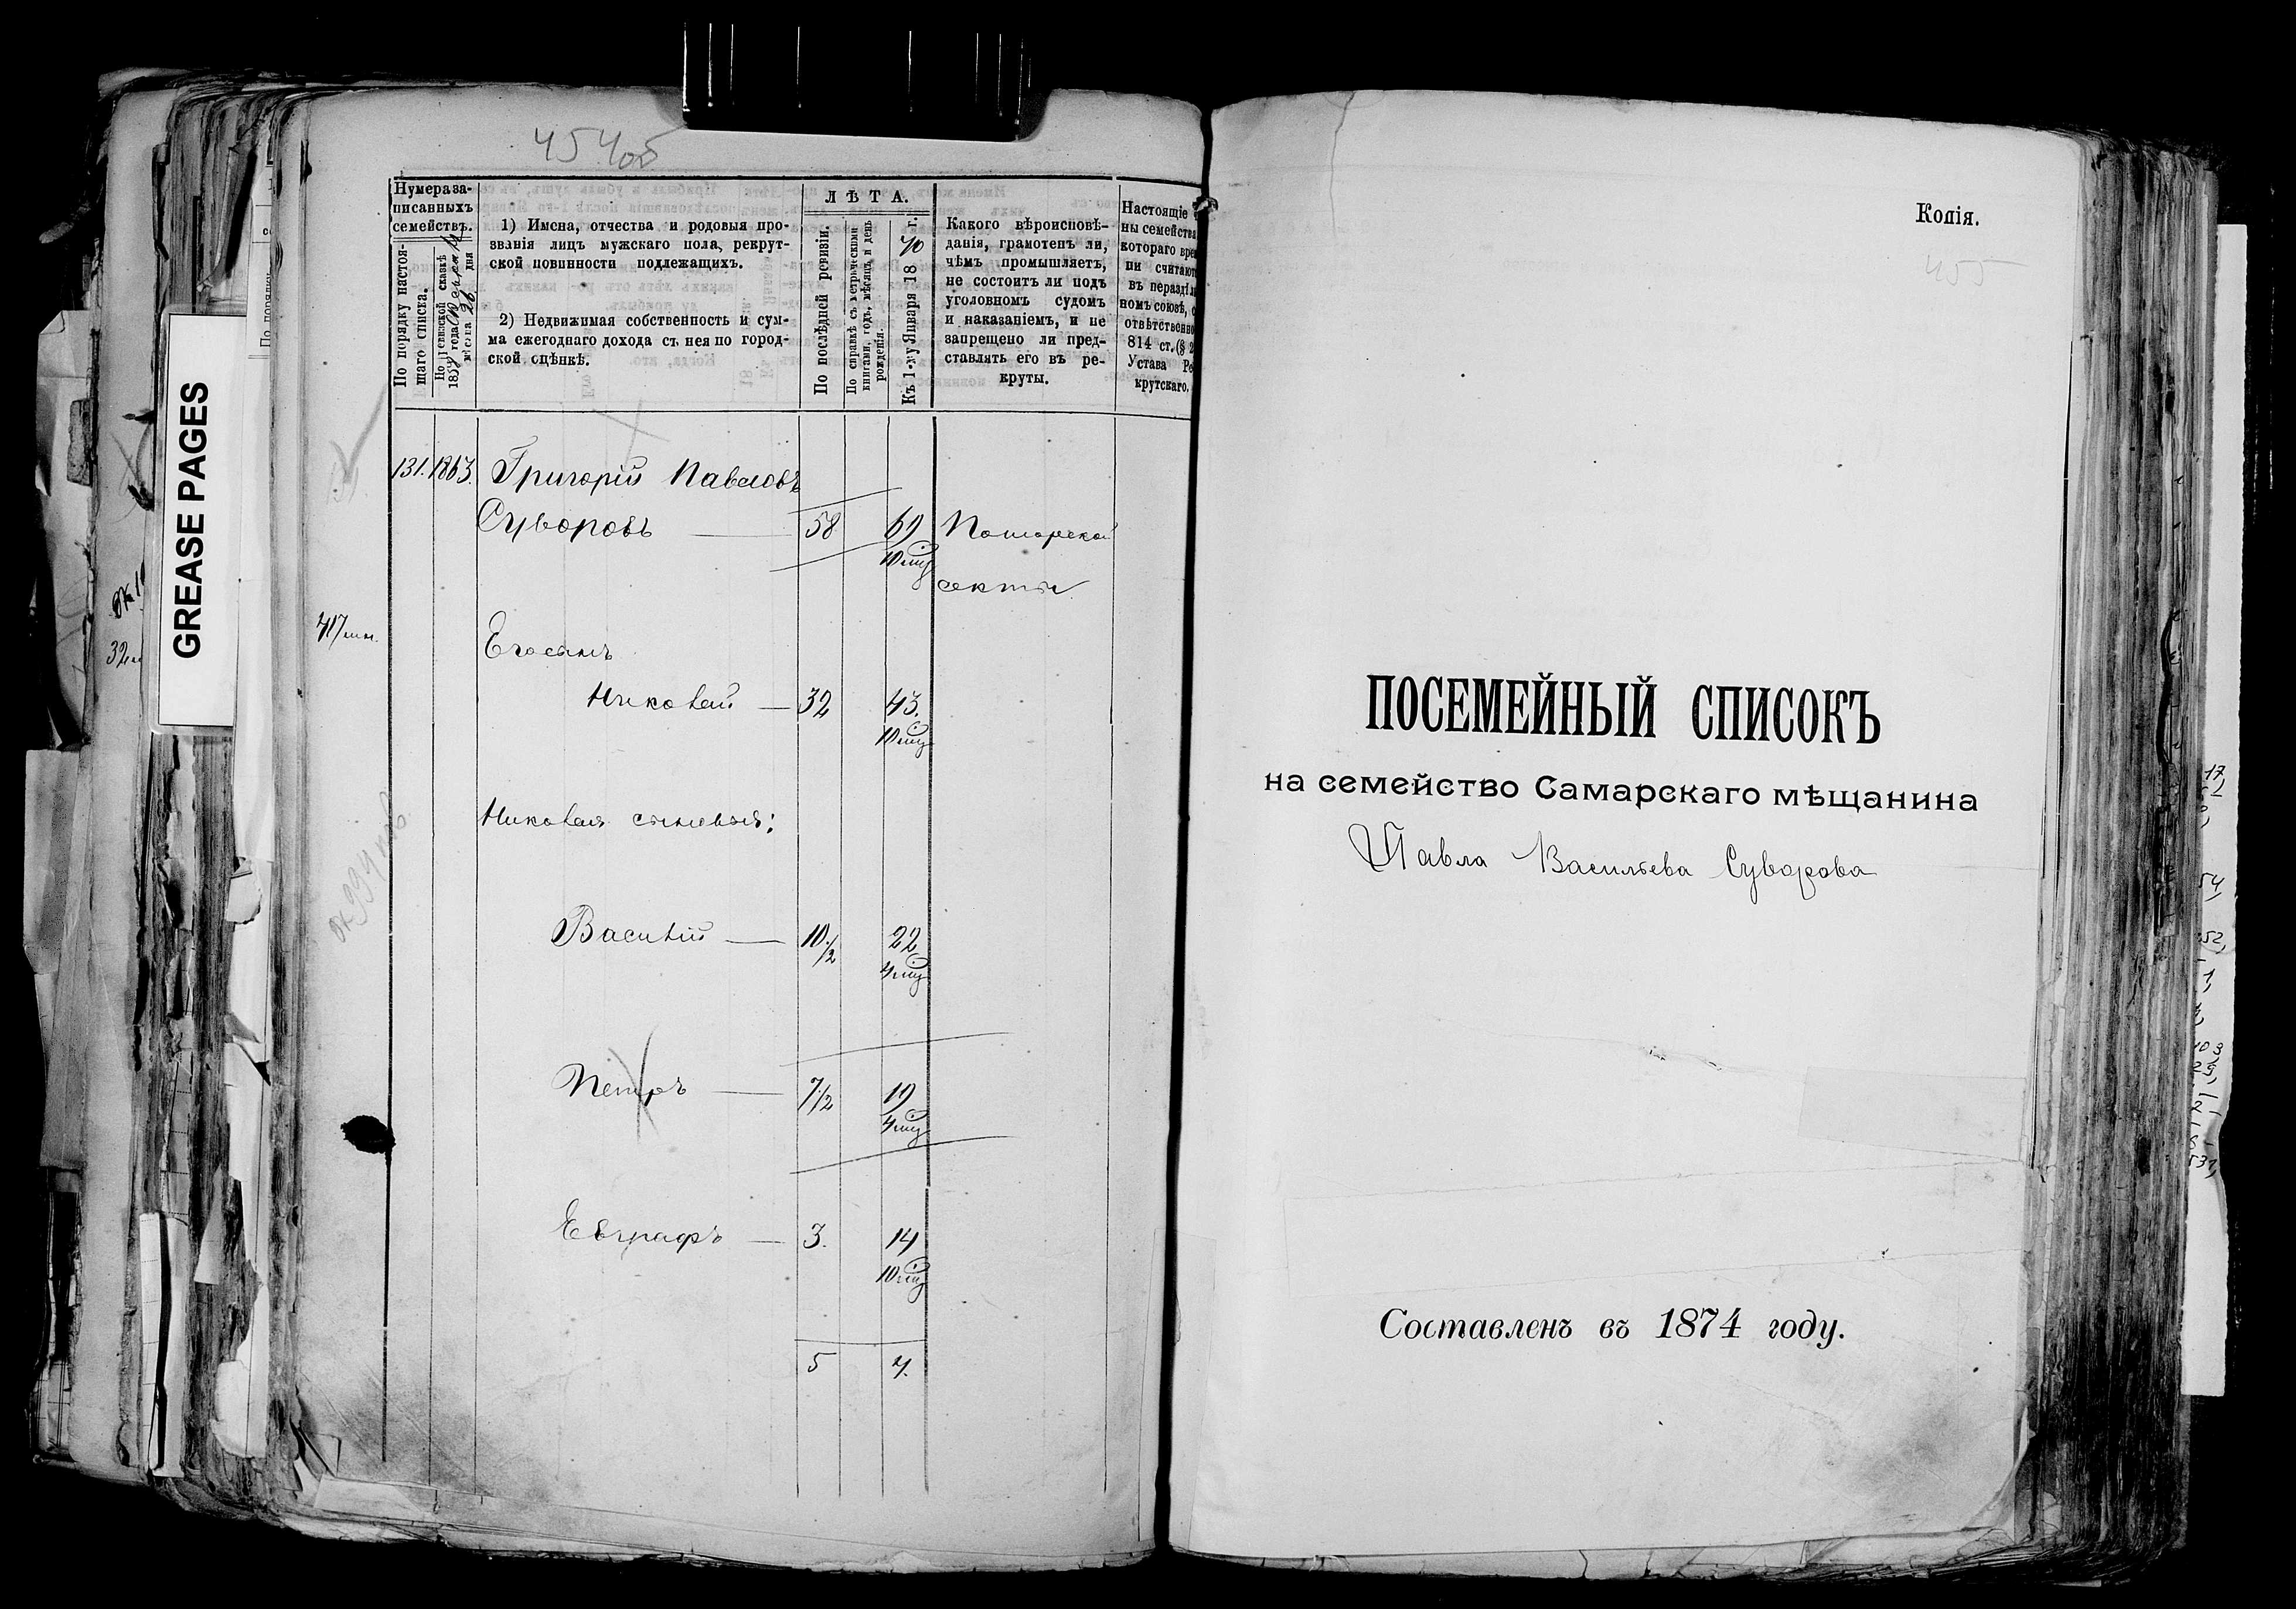 454об
Нумера за-
писанныхъ
семействъ.
По порядку настоя-
щаго списка.
По ревизской сказкѣ
1858 года
мѣсяца 26 дня
1) Имена, отчества и родовыя про-
званія лицъ мужскаго пола, рекрут-
ской повинности подлежащихъ.
2) Недвижимая собственность и сум-
ма ежегоднаго дохода съ нея по город-
ской оцѣнкѣ.
ЛѢТА.
По послѣдней ревизіи.
По справкѣ съ метрическими
книгами, годъ, мѣсяцъ и день
рожденія.
Къ 1-му Января 1870 г.
Какого вѣроисповѣ-
данія, грамотенъ ли,
чѣмъ промышляетъ,
не состоитъ ли подъ
уголовномъ судомъ
и наказаніемъ, и не
запрещено ли пред-
ставлять его въ ре-
круты.
Настоящіе
ны семейства
котораго вре
ни считают
въ нераздѣл
номъ союзѣ, с
отвѣтственно
814 ст. (§ 2
Устава Ре
крутскаго.
131. 1863. Григорій Павловъ
Суворовъ — 58 69 Поморской
10 мц
секты
Его сынъ
Николай — 32 43.
10 мц
Николая сыновья:
Василій — 10 1/2 22
4 мц
Петръ — 7 1/2 19
4 мц
Евграфъ — 3. 14
10 мц
5 4.
GREASE PAGES
Копія.
455
ПОСЕМЕЙНЫЙ СПИСОКЪ
на семейство Самарскаго мѣщанина
Павла Васильева Суворова
Составленъ въ 1874 году.